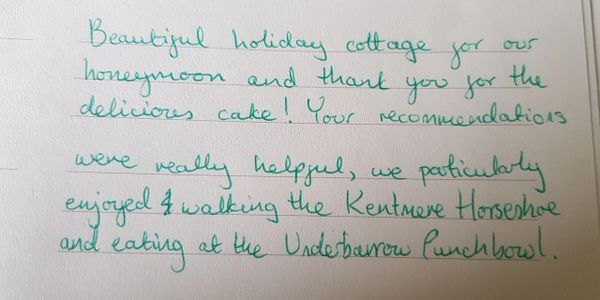 Beautiful holiday cottage for our
honeymoon and thank you for the
delicious cake! Your recommendations
were really helpful, we particularly
enjoyed & walking the Kentmere Horseshoe
and eating at the Underbarrow Punchbowl.